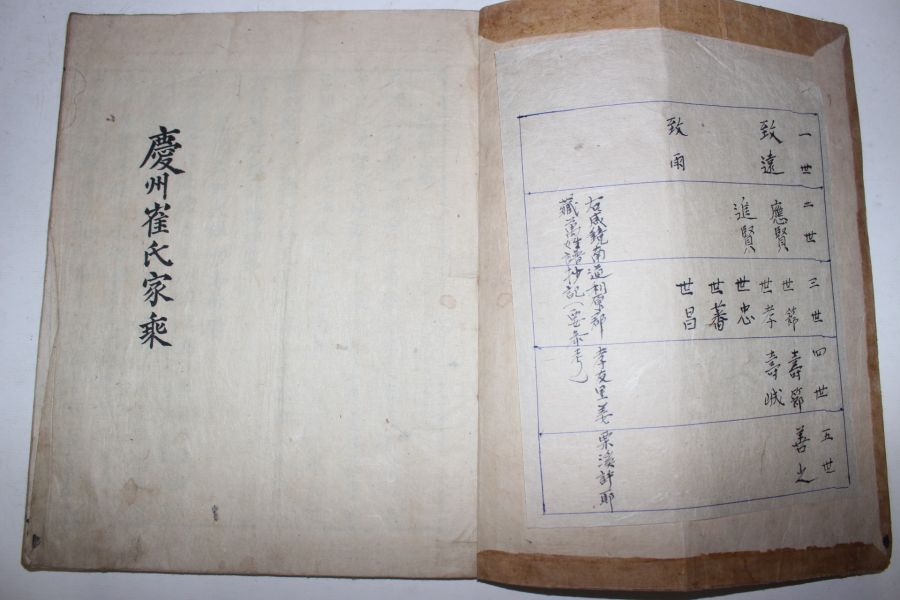 慶州崔氏家乘
一世
致遠
致雨
二世
應賢
進賢
三世
世節
世孝
世忠
世蕃
世昌
四世
壽節
壽峸
五世
善之
右咸鏡南道利原郡 孝友里姜 栗溪許耶
藏萬姓譜抄記(要參考)